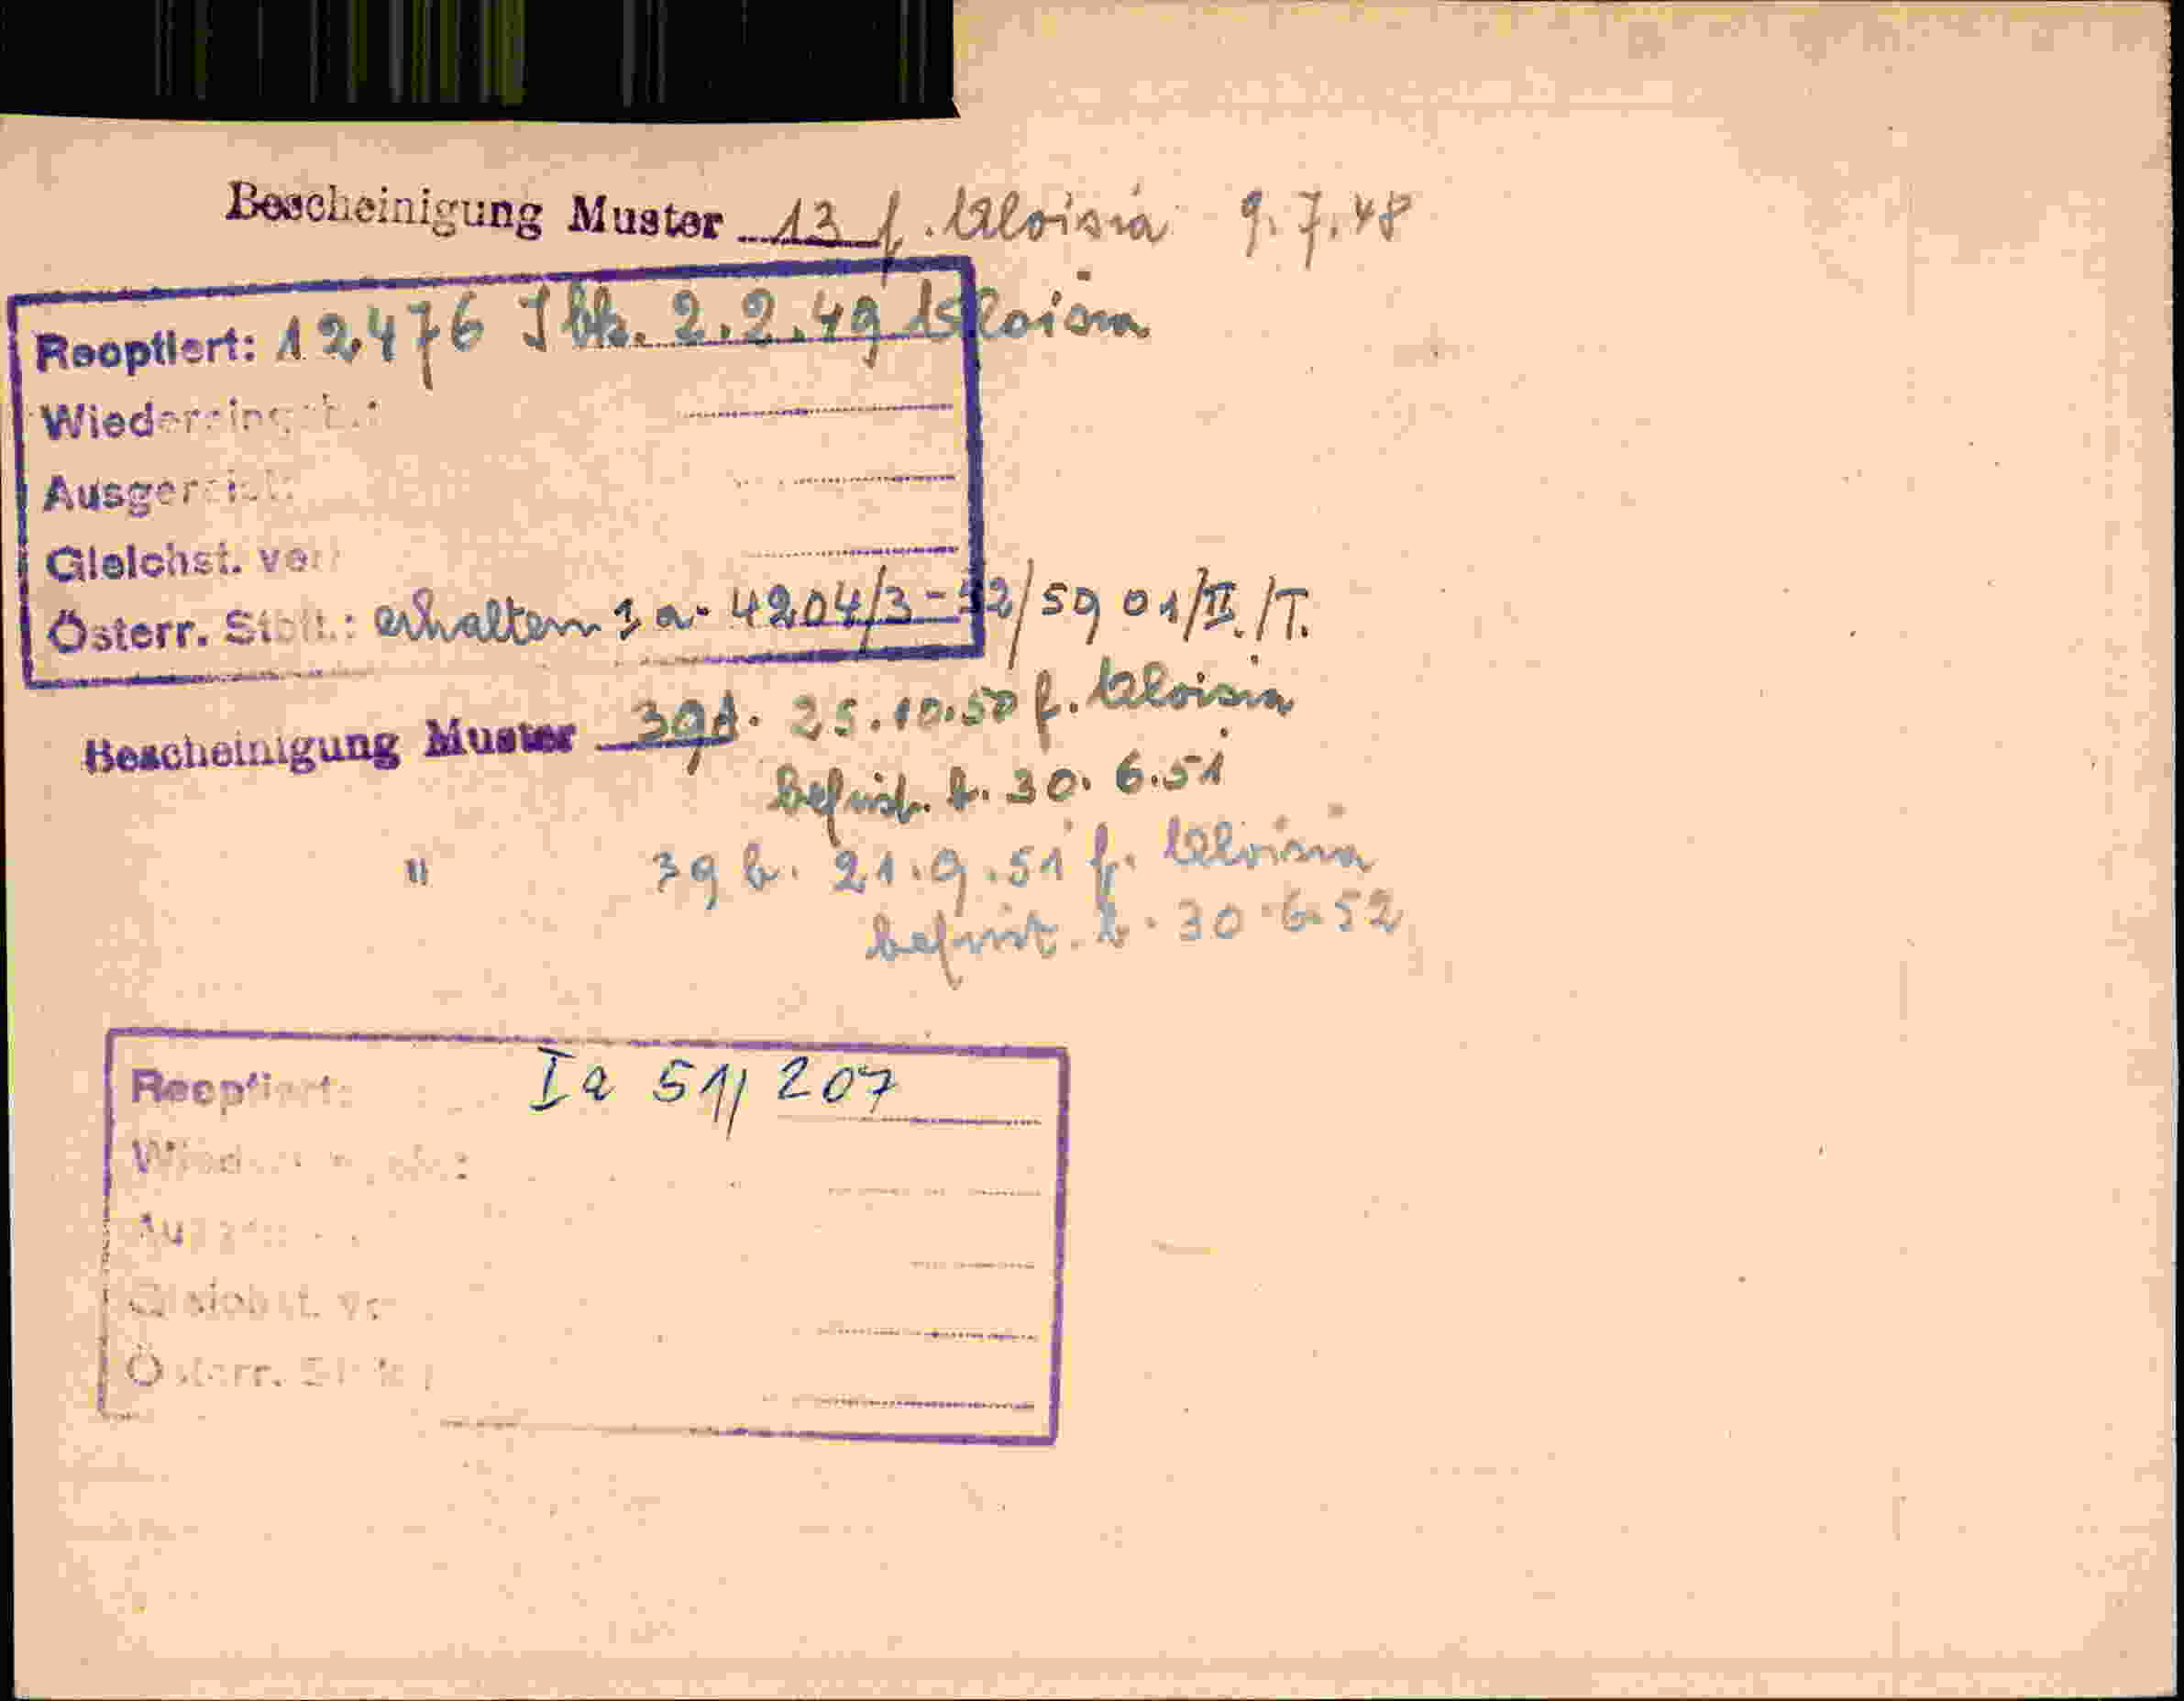 Bescheinigung Muster 13 f. Aloisia 9.7.48
Reoptiert: 12.476 Jbk. 2.2.49 Aloisia
Wiedereingeb.:
Ausgereist:
Gleichst. ver
Österr. Stbft.: erhalten Ia-4204/3-52/5901/II./T.
Bescheinigung Muster 39d. 25.10.50 f. Aloisia
befrist. b. 30.6.51
" 39 b. 21.9.51 f. Aloisia
befrist. b. 30.6.52
Reoptiert: Ia 51/207
Gleichst. ver
Österr.